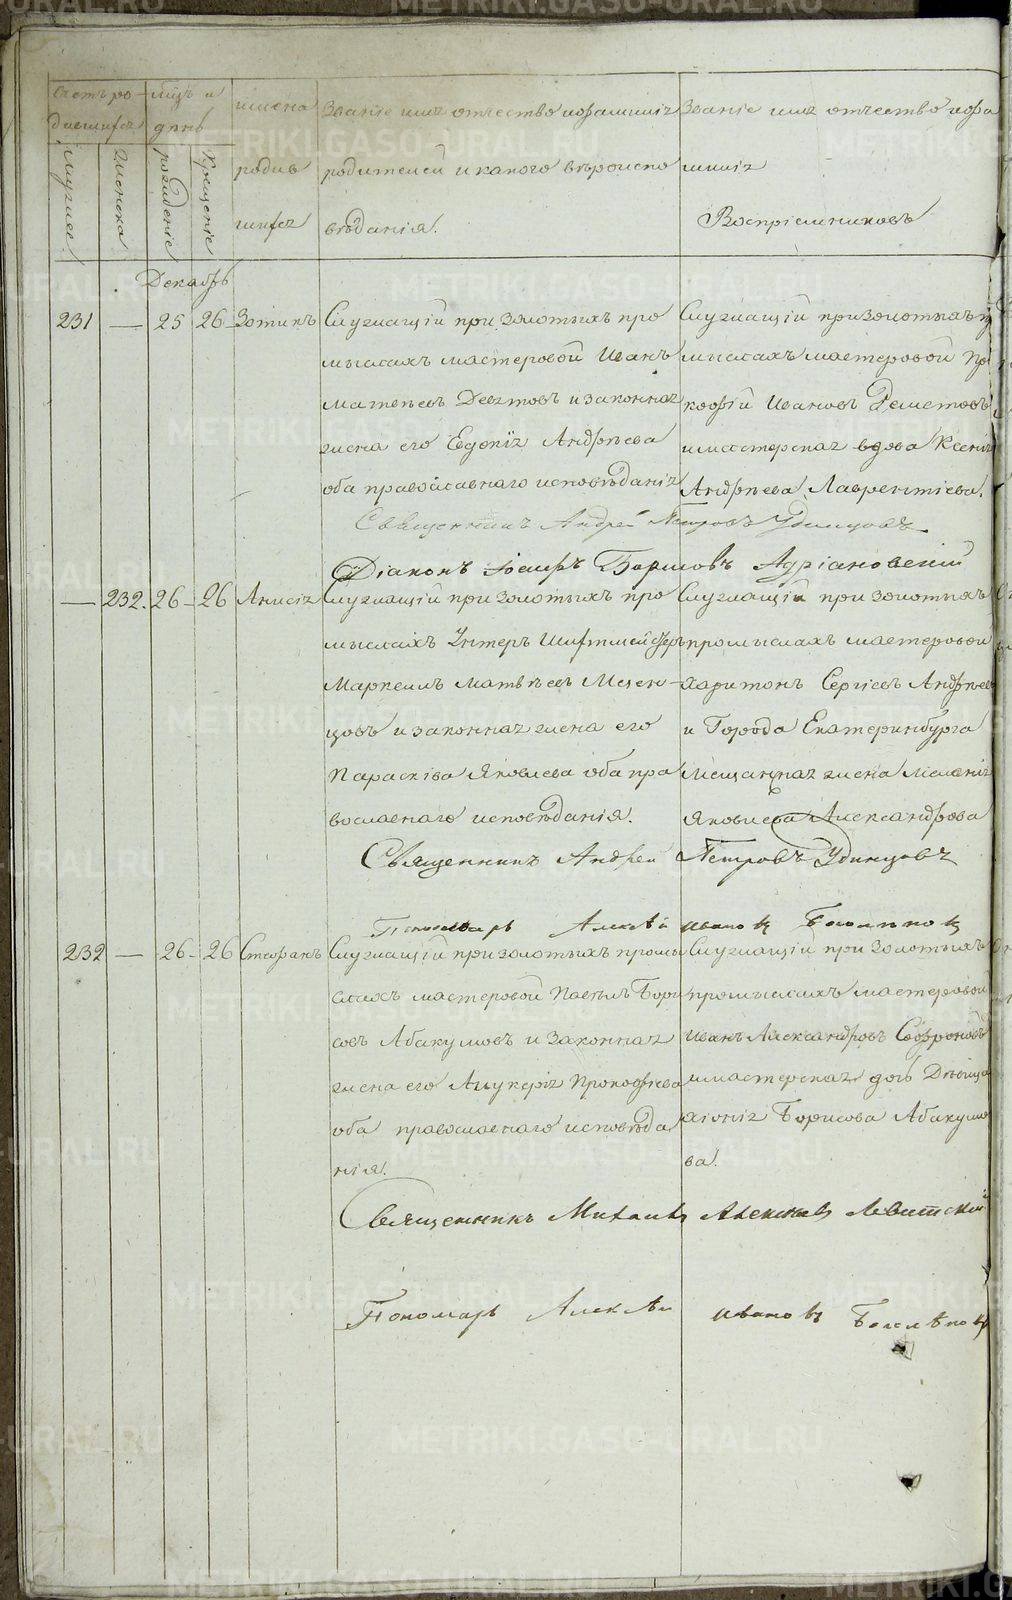 Счетъ ро-
дившихся
мужеск.
женска
мѣцъ и
днѣ
рожденіе
крещеніе
имена
родив
шихся
Званіе имя отчество и фамилія
родителей и какого вѣроиспо
вѣданія.
Званіе имя отчество и фа
милія
Воспріемниковъ
Декабрь
231 — 25 26 Зотикъ
Служащій при золотыхъ про
мыслахъ мастеровой Иванъ
Матвѣевъ Девятовъ и законная
жена его Евдокія Андрѣева
оба православнаго исповѣданія
Служащій при золотыхъ п
мыслахъ мастеровой Про
кофій Ивановъ Деметьевъ
и мастерская вдова Ксенія
Андрѣева Лаврентіева.
Священникъ Андрей Петровъ Удинцовъ
Діаконъ Іосифъ Борисовъ Адріановскій
— 232. 26 – 26 Анисія
Служащій при золотыхъ про
мыслахъ Унтеръ Шихтмейстеръ
Маркеллъ Матвѣевъ Мезен-
цовъ и законная жена его
Парасківа Яковлева оба пра
вославнаго исповѣданія.
Служащій при золотыхъ
промыслахъ мастеровой
Харитонъ Сергѣевъ Андрѣевъ
и Города Екатеринбурга
мещанская жена Меланія
Яковлева Александрова
Священникъ Андрей Петровъ Удинцовъ
Пономарь Алексѣй Ивановъ
232 — 26 – 26 Стефанъ
Служащій при золотыхъ промы
слахъ мастеровой Павелъ Бори
совъ Абакумовъ и законная
жена его Гликерія Прокофьева
оба православнаго исповѣда
нія.
Служащій при золотыхъ
промыслахъ мастеровой
Иванъ Александровъ Софроновъ
и мастерская дочь Дѣвица
Хіонія Борисова Абакумо
ва.
Священникъ Михаилъ Алексѣевъ Левитскій
Пономарь Алексѣй Ивановъ
METRIKI.GASO-URAL.RU